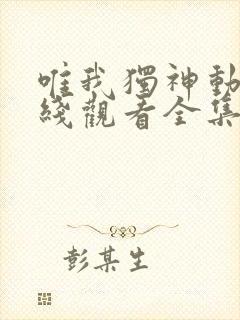 唯我獨神動
綫觀看全集
彭某生